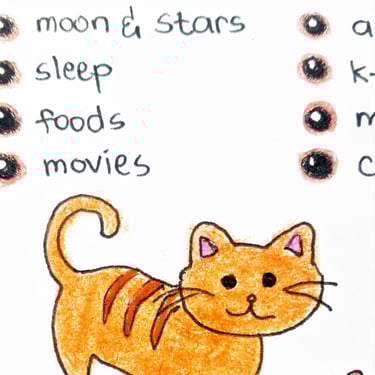 moon & stars
sleep
foods
movies